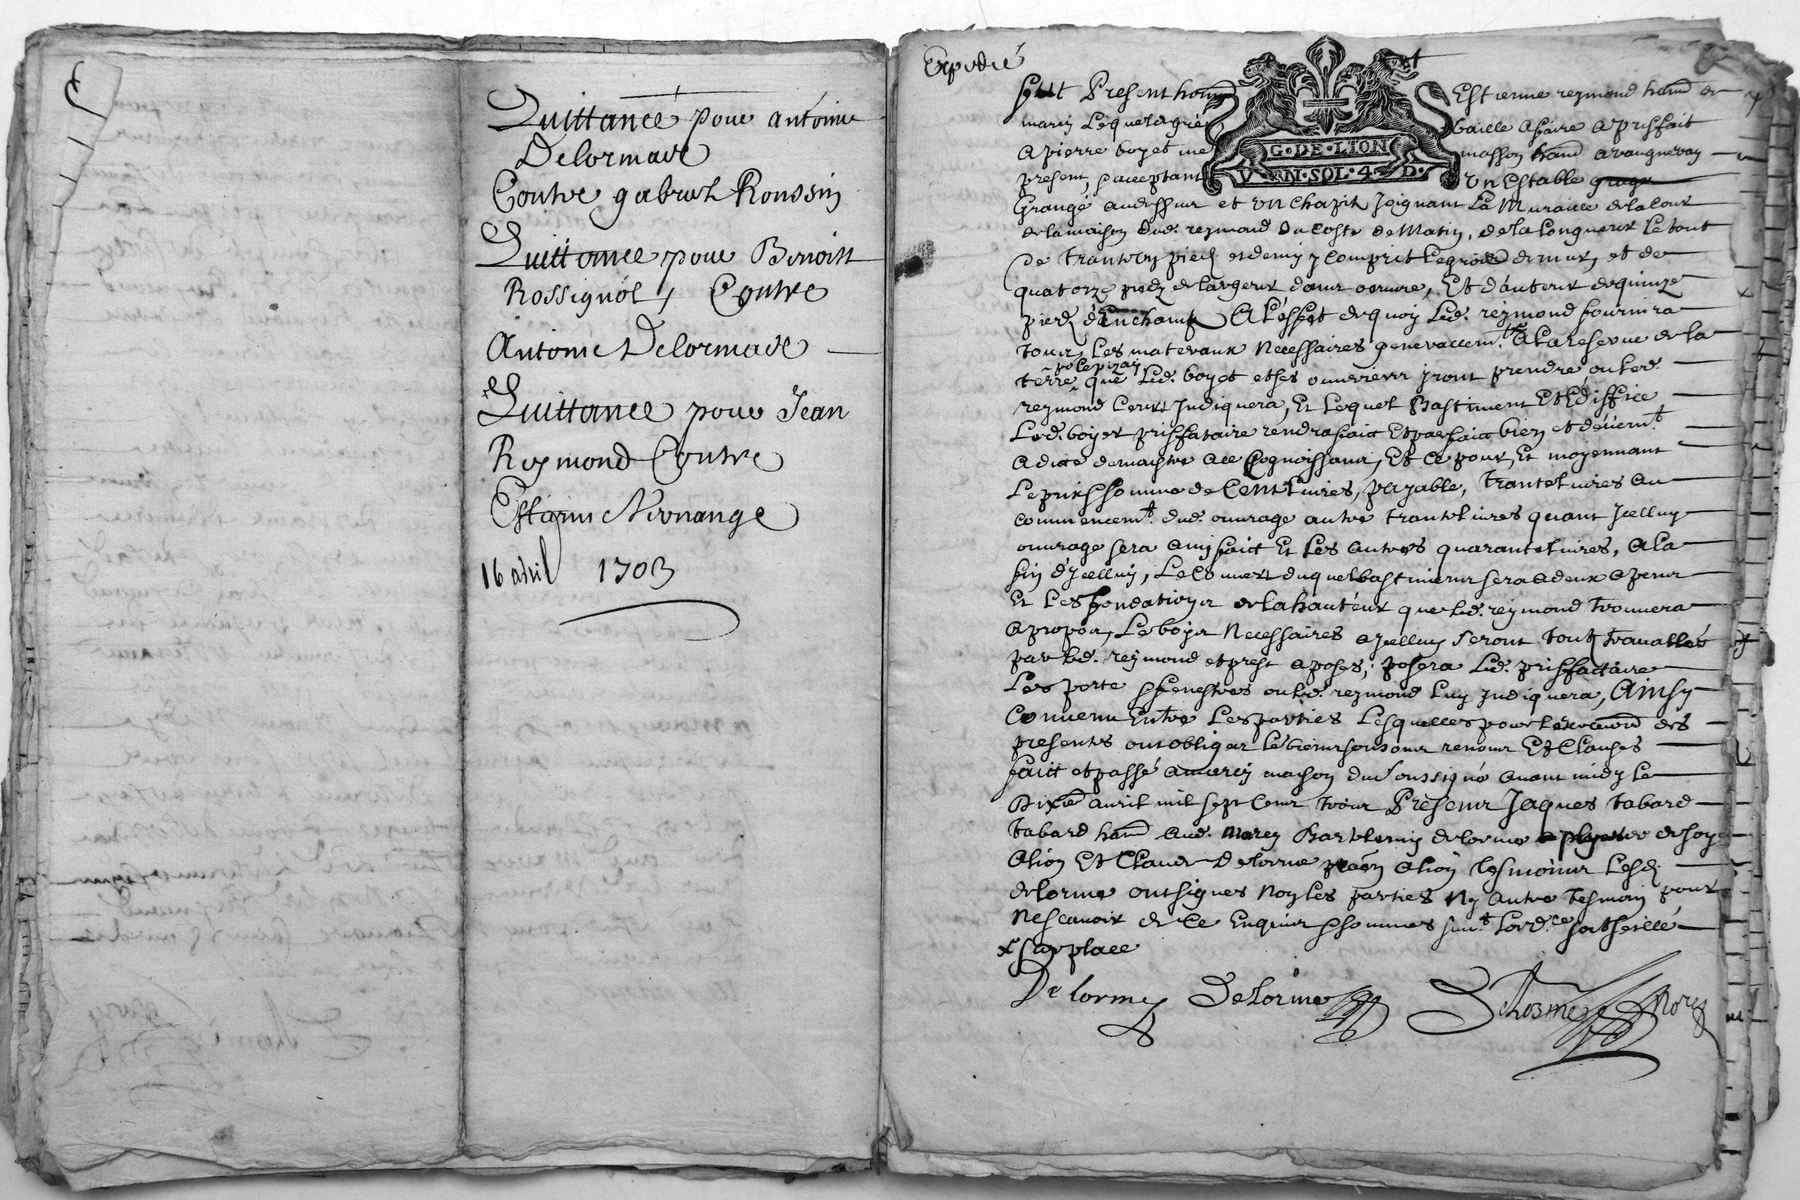 Quittance pour antoine
Delormave
Contre gabriel Roussin
Quittance pour Benoist
Rossignol, Contre
Antoine Delormave
Quittance pour Jean
Reymond Contre
Estienne Nironange
16 avril 1703
Expedié
fut Present hon^e Estienne reymond hab^t de
marcy Lequel de gré baille a faire a prisfait
a pierre boyet me masson hab^t
present, & acceptant Un Estable
G·DE·LION
V N·SOL·4·D·
Grange audessur et un Chapit Joignant La Muraille de la Cour
de la maison dud. reymond du Coste de Matin, de la Longueur le tout
De trante piedz et demy y Comprit Legros de murs, et de
quatorze piedz de Largeur dans oeuvre, Et d'auteur de quinze
piedz A L'effet de quoy Led. reymond fournira
tour Les materaux Necessaires generallem^t A La reserve de la
terre que Led. boyet et ses ouvriers yront prendre ou Led.
reymond Leurs Indiquera, Et Lequel Bastiment Et Ediffice
Led. boyet prisfataire rendra faict Et parfaict bien et deuem^t
A dicte de maistre a ce Cognoissans, Et Ce pour, Et moyennant
Le prix & somme de Cent Livres, payable, trante Livres au
commencem^t dud. ouvrage autre trante Livres quant Jcelluy
ouvrage sera a my faict Et Les autres quarante Livres, A La
fin d'Jcelluy, Le Couvert duquel bastiment sera a deux apens
Et Les fondations de la hauteur que Led. reymond trouvera
a propos, Le boys Necessaires a Jcelluy Seront tout travallés
par Led. reymond et prest a poser, posera Led. prisfactaire
Les porte & fenestres ou Led. reymond Luy Indiquera, Ainsy
Convenu Entre Les parties Lesquelles pour L'execution des
presentes ont obliger Le biens renonc Et Clauses
faict et passé a marcy maison du soussigné avant midy Le
Dixie avril mil sept Cent trois Present Jaques tabard
tabard hab^t aud. Marcy Barthelemy delorme de soye
A Lion Et Claude Delorme A Lion tesmoins Lesd.
delorme ont signes Non Les parties Ny Autre tesmoin pour
Nescavoir de Ce Enquis & sommes suiv^t L'ord.^ce soit seellé
sur place
Delorme Delorme Delorme